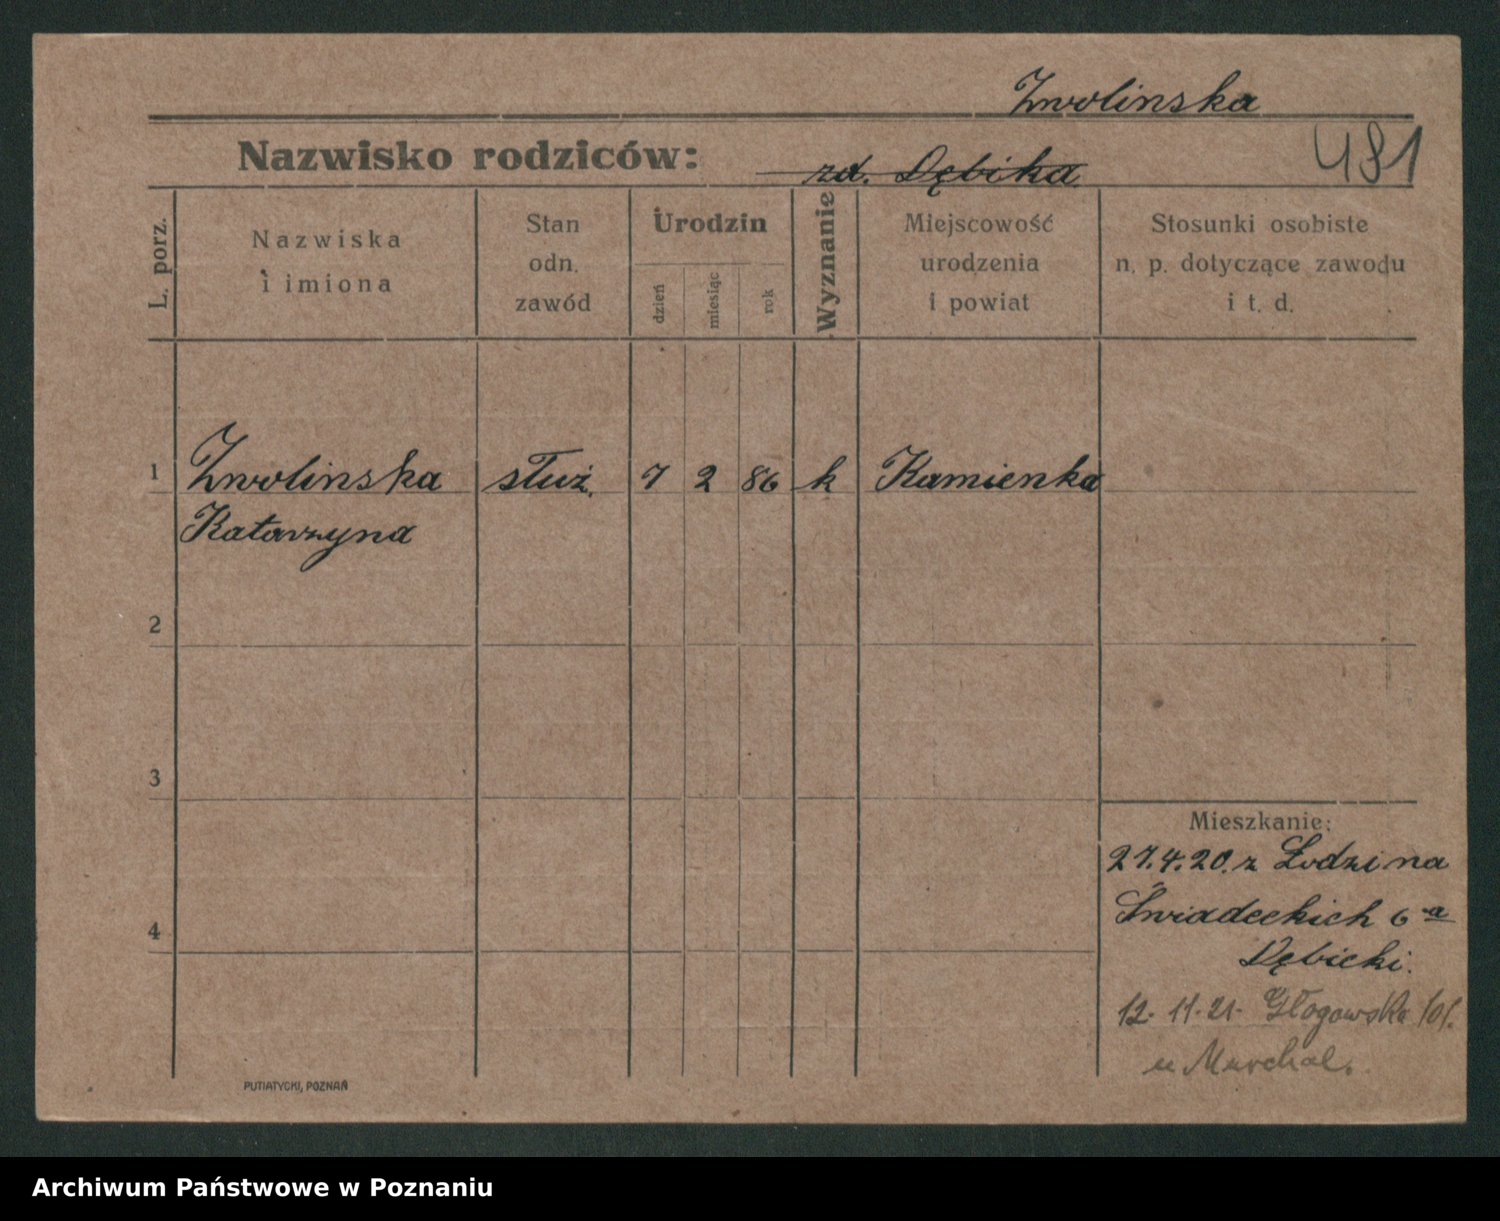 Zwolinska
Nazwisko rodziców:
zd. Dębika
481
L. porz.
Nazwiska
i imiona
Stan
odn.
zawód
Urodzin
dzień
miesiąc
rok
Wyznanie
Miejscowość
urodzenia
i powiat
Stosunki osobiste
n. p. dotyczące zawodu
i t. d.
1 Zwolinska służ. 7 2 86 k Kamienka
Katarzyna
2
3
Mieszkanie:
27.4.20. z Łodzi na
Śniadeckich 6 a
4
Dębicki.
12. 11. 21. Głogowska 101.
u Marchal.
PUTIATYCKI, POZNAŃ
Archiwum Państwowe w Poznaniu